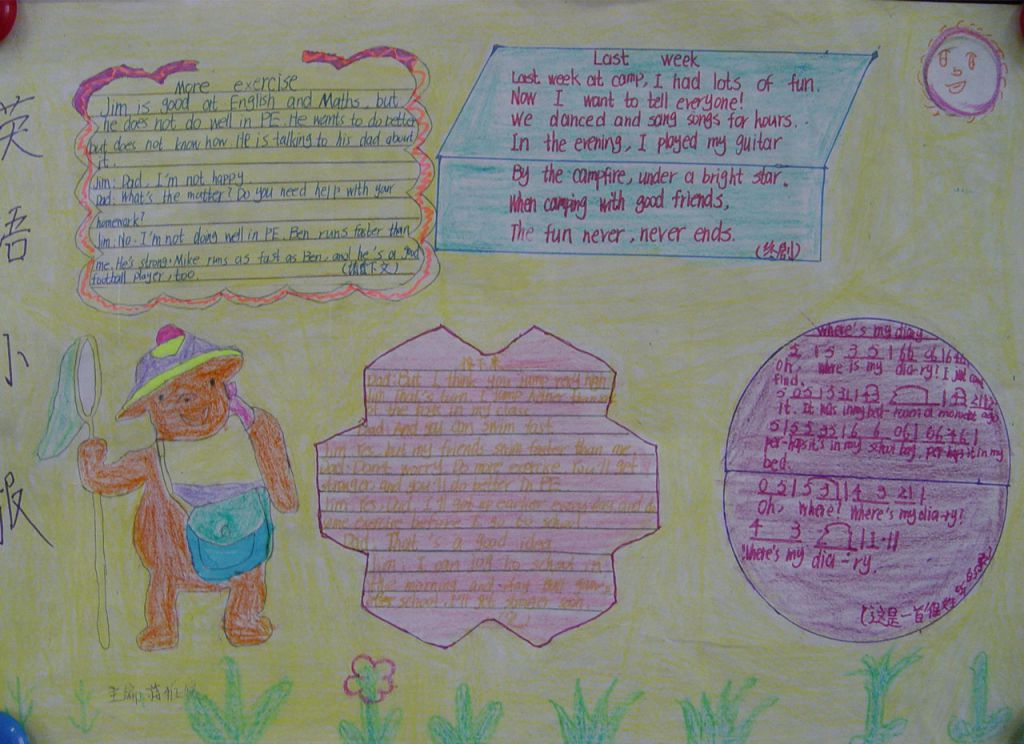 英语小报
More exercise
Jim is good at English and Maths, but
he does not do well in PE. He wants to do better
but does not know how. He is talking to his dad about
it.
Jim: Dad, I'm not happy.
Dad: What's the matter? Do you need help with your
homework?
Jim: No. I'm not doing well in PE. Ben runs faster than
me. He's strong. Mike runs as fast as Ben, and he's a good
football player, too.
Last week
Last week at camp, I had lots of fun.
Now I want to tell everyone!
We danced and sang songs for hours.
In the evening, I played my guitar
By the campfire, under a bright star.
When camping with good friends,
The fun never, never ends.
接下来
Dad: But I think you jump
in the boys in my class
Dad: And you can swim fast
Jim: Yes, but my friends swim faster than me.
Dad: Don't worry. Do more exercise. You'll get
stronger and you'll do better in PE.
Jim: Yes, Dad. I'll get up earlier every day and do
some exercise before I go to school
Dad: That's a good idea
Jim: I can jog to school in
the morning and play ball games
after school. I'll get stronger soon.
where's my diary
Oh, where is my dia-ry! I just can't
find
it. It was in my bed-room a moment ago
per-haps it's in my school bag, per-haps it's in my
bed.
Oh, where? Where's my dia-ry?
Where's my dia-ry.
(这是一首
主编:蒋